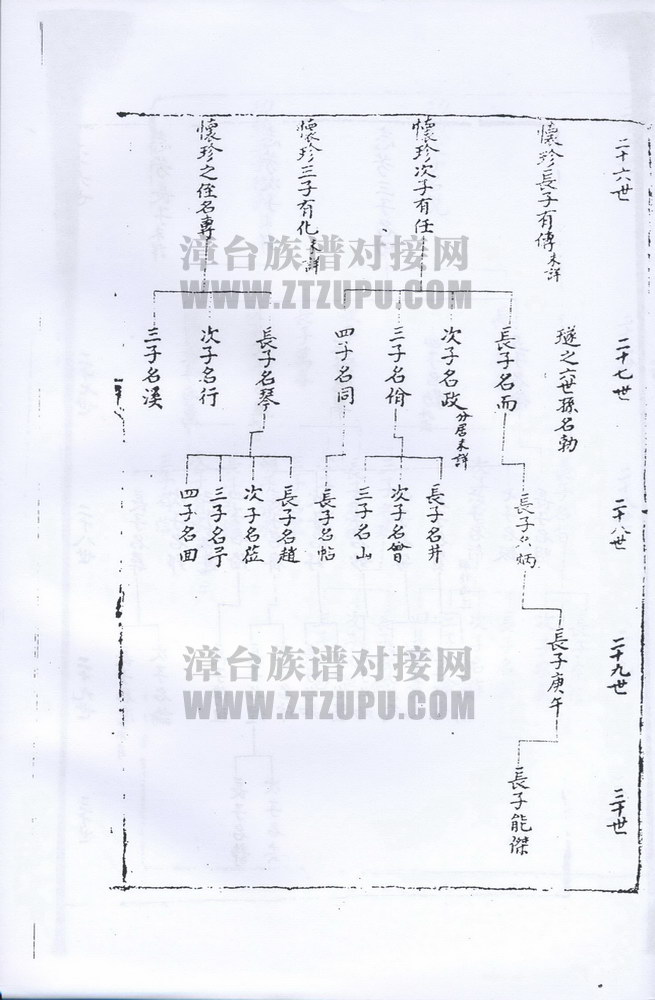 二十六世
懷珍長子有傳未詳
懷珍次子有任
懷珍三子有化未詳
懷珍之侄名專
漳台族谱对接网
WWW.ZTZUPU.COM
二十七世
璲之六世孫名勃
長子名而
次子名政分居未詳
三子名佾
四子名同
長子名琴
次子名行
三子名溪
二十八世
長子名炳
長子名井
次子名曾
三子名山
長子名帖
長子名趙
次子名莅
三子名
四子名田
二十九世
長子庚午
漳台族谱对接网
WWW.ZTZUPU.COM
三十世
長子能傑